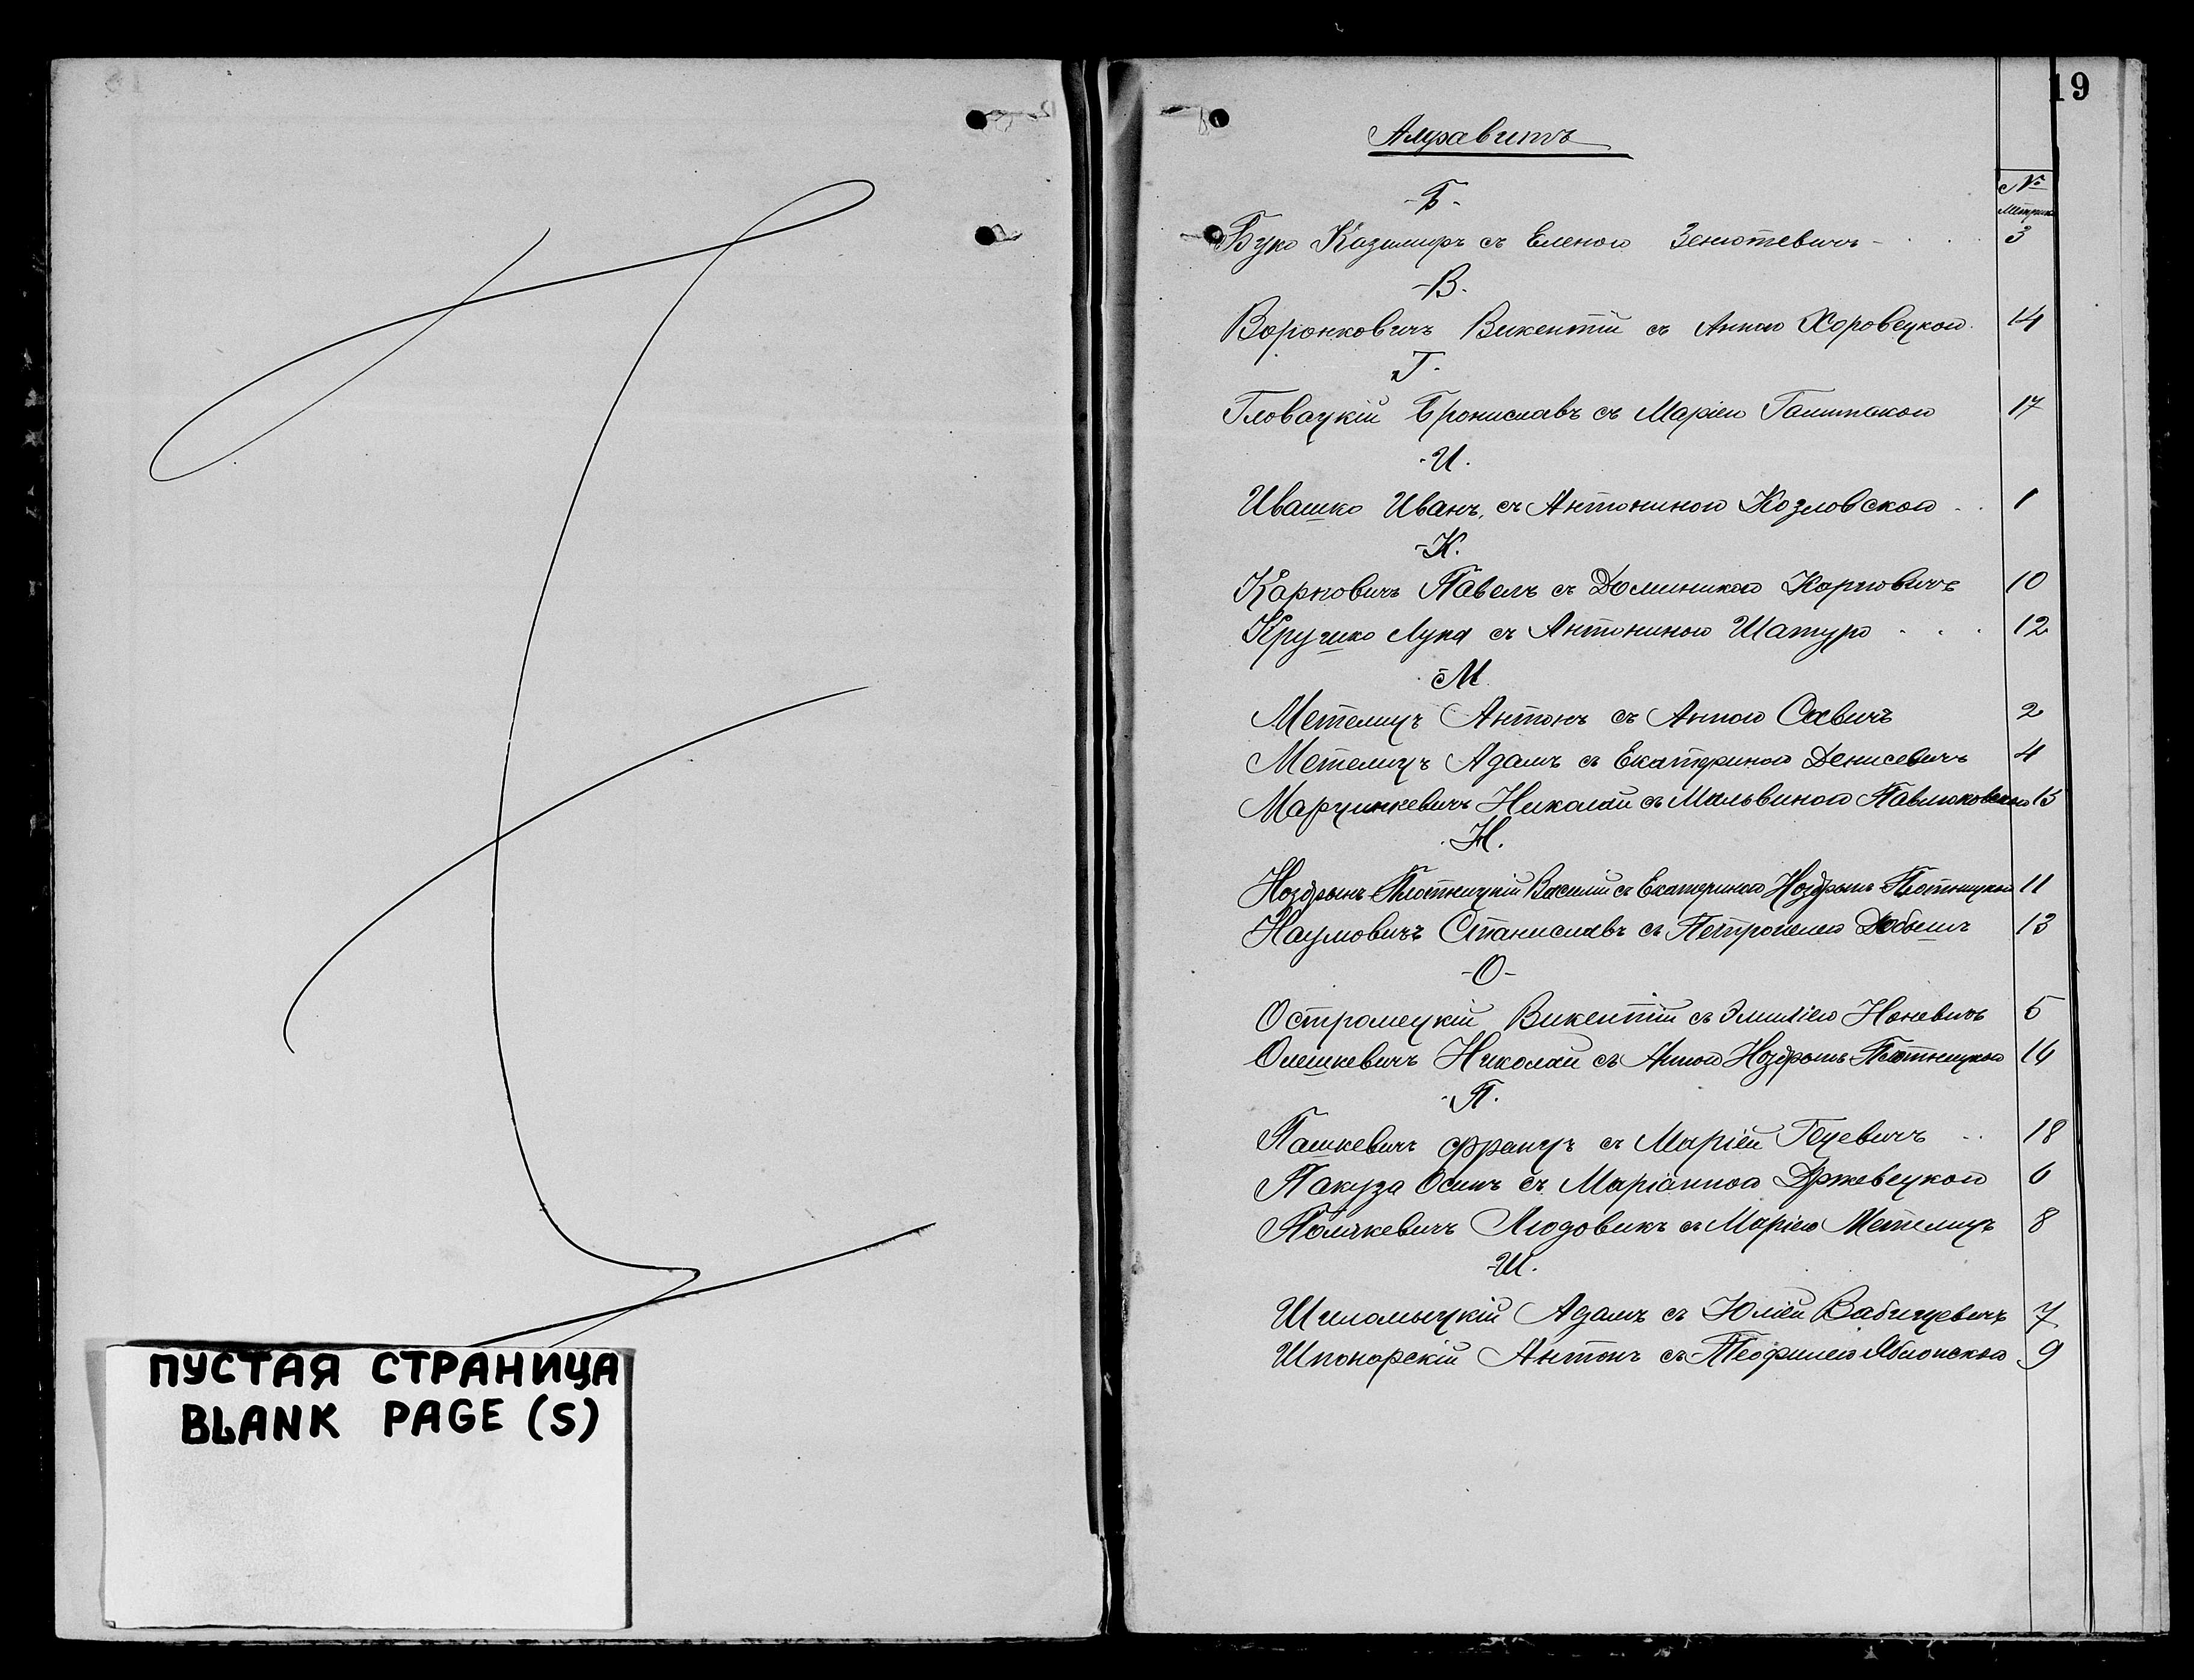 ПУСТАЯ СТРАНИЦА
BLANK PAGE (S)
19
Алфавитъ
№
Метрик
-Б.
Буко Казимиръ съ Еленою Зенютевичъ - 3
-В.
Воронковичъ Викентій съ Анною Хоровецкою 14
Г.
Гловацкій Брониславъ съ Маріею 17
-И.
Ивашко Иванъ съ Антониною Козловскою 1
-К.
Карповичъ Павелъ съ Доминикою Карповичъ 10
Кручко Лука съ Антониною Шатуро 12
М
Метелицъ Антонъ съ Анною Савичъ 2
Метелицъ Адамъ съ Екатериною Денисевичъ 4
Марцинкевичъ Николай съ Мальвиною Павлюковскою 15
Н.
Ноздрынъ-Плотницкій Василій съ Екатериною Ноздрынъ-Плотницкою 11
Наумовичъ Станиславъ съ Петронелею 13
-О-
Остромецкій Викентій съ Эмиліею Наневичъ 5
Олешкевичъ Николай съ Анною Ноздрынъ-Плотницкою 16
-П.
Пашкевичъ Францъ съ Маріей Гецевичъ 18
Пакуза Осипъ съ Маріанною Држевецкою 6
Полякевичъ Людовикъ съ Маріею Метелицъ 8
-Ш.
Адамъ съ Юліей Бабицевичъ 7
Шпонарскій Антонъ съ Теофилею Яблонскою 9